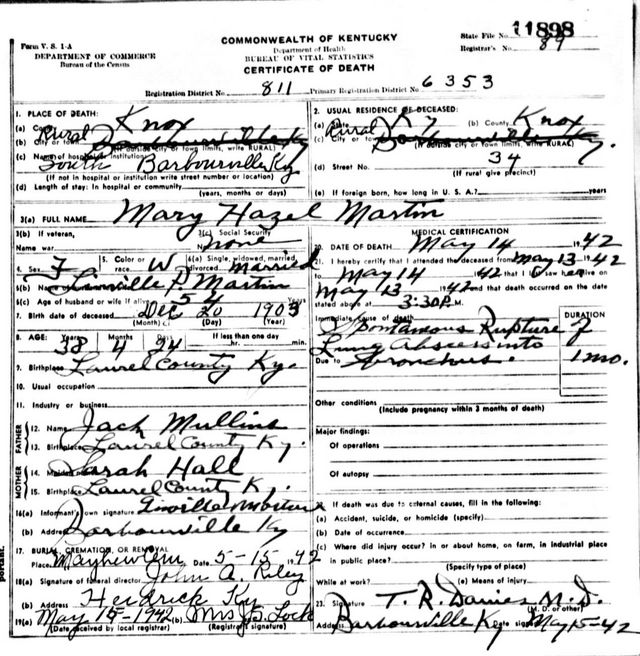 Form V. S. 1-A
DEPARTMENT OF COMMERCE
Bureau of the Census
COMMONWEALTH OF KENTUCKY
Department of Health
BUREAU OF VITAL STATISTICS
CERTIFICATE OF DEATH
State File No. 11898
Registrar's No. 89
Registration District No. 811 Primary Registration District No. 6353
1. PLACE OF DEATH:
(a) County Knox
Rural
(b) City or town
(If outside city or town limits, write RURAL)
(c) Name of hospital or institution: South Barbourville Ky
(If not in hospital or institution write street number or location)
(d) Length of stay: In hospital or community
(years, months or days)
2. USUAL RESIDENCE OF DECEASED:
(a) State Ky (b) County Knox
Rural
(c) City or town Ky.
(If outside city or town limits, write RURAL)
(d) Street No. 34
(If rural give precinct)
(e) If foreign born, how long in U. S. A.? years
3(a) FULL NAME Mary Hazel Martin
3(b) If veteran,
Name war
3(c) Social Security
No. none
4. Sex F 5. Color or race W 6(a) Single, widowed, married, divorced Married
6(b) Name P. Martin
6(c) Age of husband or wife if alive 54 Years
7. Birth date of deceased Dec 20 1903
(Month) (Day) (Year)
8. AGE: Years Months Days If less than one day
38 4 24 hr. min.
9. Birthplace Laurel County Ky.
10. Usual occupation
11. Industry or business
FATHER
12. Name Jack Mullins
13. Birthplace Laurel County Ky.
MOTHER
14. Maiden name Sarah Hall
15. Birthplace Laurel County K.
16(a) Informant's own signature
(b) Address Barbourville Ky
17. BURIAL, CREMATION, OR REMOVAL
Place Mayhew Cem Date 5-15 1942
18(a) Signature of funeral director John A. Riley
(b) Address Heidrick Ky
19(a) May 15-1942 (b) Mrs J. B. Lock
(Date received by local registrar) (Registrar's signature)
MEDICAL CERTIFICATION
20. DATE OF DEATH May 14 1942
21. I hereby certify that I attended the deceased from May 13 1942
to May 14 1942 that I last saw her alive on
May 13 1942 and that death occurred on the date
stated above at 3:30 P.M.
Immediate cause of death DURATION
Spontanous Rupture of
Lung Abscess into
Due to Bronchus. 1 mo.
Other conditions
(Include pregnancy within 3 months of death)
Major findings:
Of operations
Of autopsy
22. If death was due to external causes, fill in the following:
(a) Accident, suicide, or homicide (specify)
(b) Date of occurrence
(c) Where did injury occur? in or about home, on farm, in industrial place
in public place?
(Specify type of place)
While at work? (e) Means of injury
23. Signature T. R. Davies M.D.
(M. D. or other)
Address Barbourville Ky Date signed May 15-42
portant.